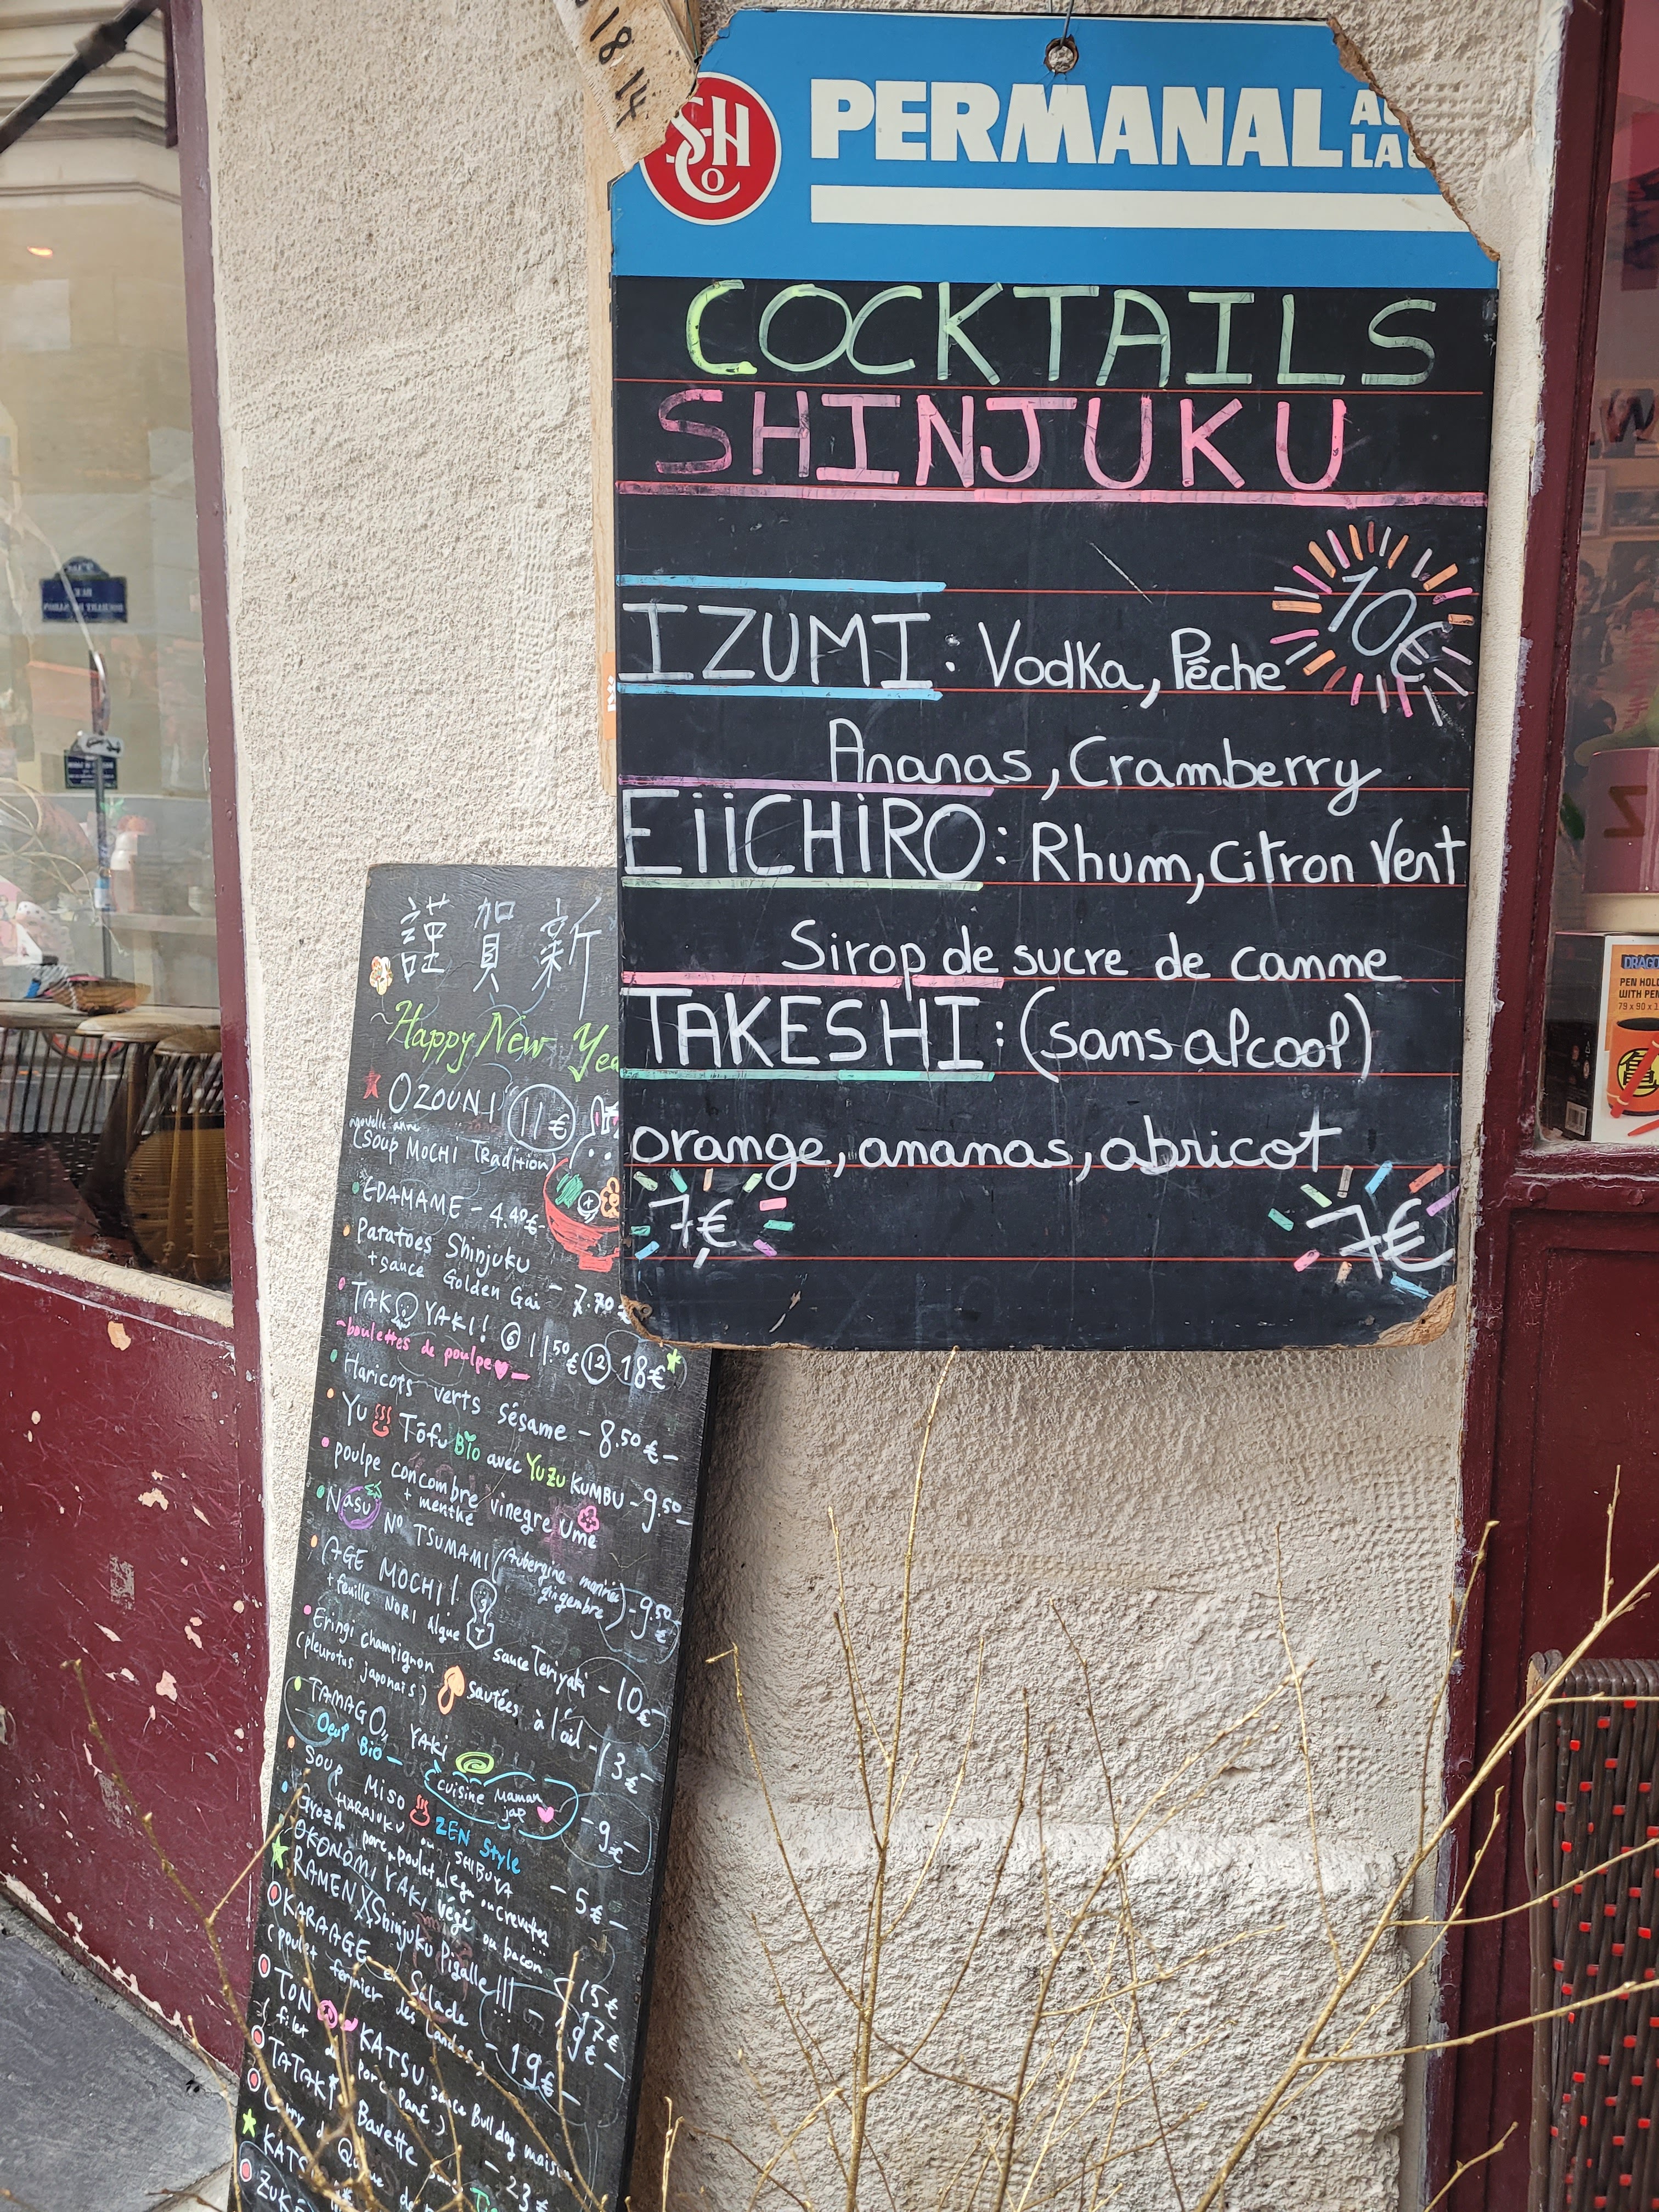 18.14
SHCo
PERMANAL
LA
COCKTAILS
SHINJUKU
10€
IZUMI : Vodka, Pêche
Ananas, Cramberry
EiiCHiRO : Rhum, Citron Vert
Sirop de sucre de canne
TAKESHI : (sans alcool)
orange, ananas, abricot
7€ 7€
謹賀新
Happy New Yea
OZOUNI 11€
nouvelle anne
(Soup MOCHI Tradition)
EDAMAME - 4.40€
Patatoes Shinjuku
+ sauce Golden Gai - 7.70
TAKOYAKI! 6 11.50€ 12 18€
~boulettes de poulpe♥-
Haricots verts sésame - 8.50€-
Yu Tōfu Bio avec YUZU KUMBU - 9.50
poulpe concombre vinegre Ume
+ menthe
Nasu No TSUMAMI (Aubergine marinée gingembre) - 9.50€
AGE MOCHI!
+ feuille NORI Algue sauce Teriyaki - 10€
Eringi champignon sautées à l'ail - 13€-
(pleurotus japonais)
TAMAGO YAKI
Oeuf Bio - cuisine Maman jap ♥ - 9€-
Soup Miso ZEN Style
HARAJUKU ou SHIBUYA - 5€-
GYOZA porc poulet leg ou crevettes
OKONOMI YAKI végé ou bacon - 15€
RAMEN Shinjuku Pigalle!!! - 17€
KARAAGE et Salade
(poulet fermier des Landes) - 19€-
TON KATSU sauce Bull dog maison
(filet de porc pané) - 23€
TATAKI Bavette
Curry de
KATS
ZUKE
DRAGO
PEN HOLD
WITH PEN